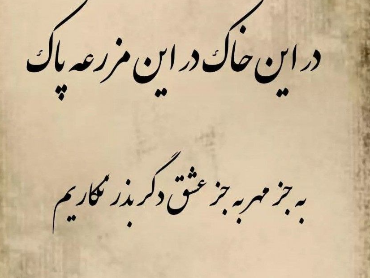 در این خاک در این مزرعه پاک
به جز مهر به جز عشق دگر بذر نکاریم